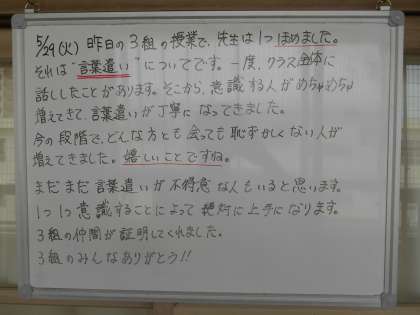 5/29(火) 昨日の3組の授業で、先生は1つほめました。
それは"言葉遣い"についてです。一度、クラス全体に
話ししたことがあります。そこから、意識する人がめちゃめちゃ
増えてきて、言葉遣いが丁寧になってきました。
今の段階で、どんな方とも会っても恥ずかしくない人が
増えてきました。嬉しいことですね。
まだまだ言葉遣いが不得意な人もいると思います。
1つ1つ意識することによって絶対に上手になります。
3組の仲間が証明してくれました。
3組のみんなありがとう!!